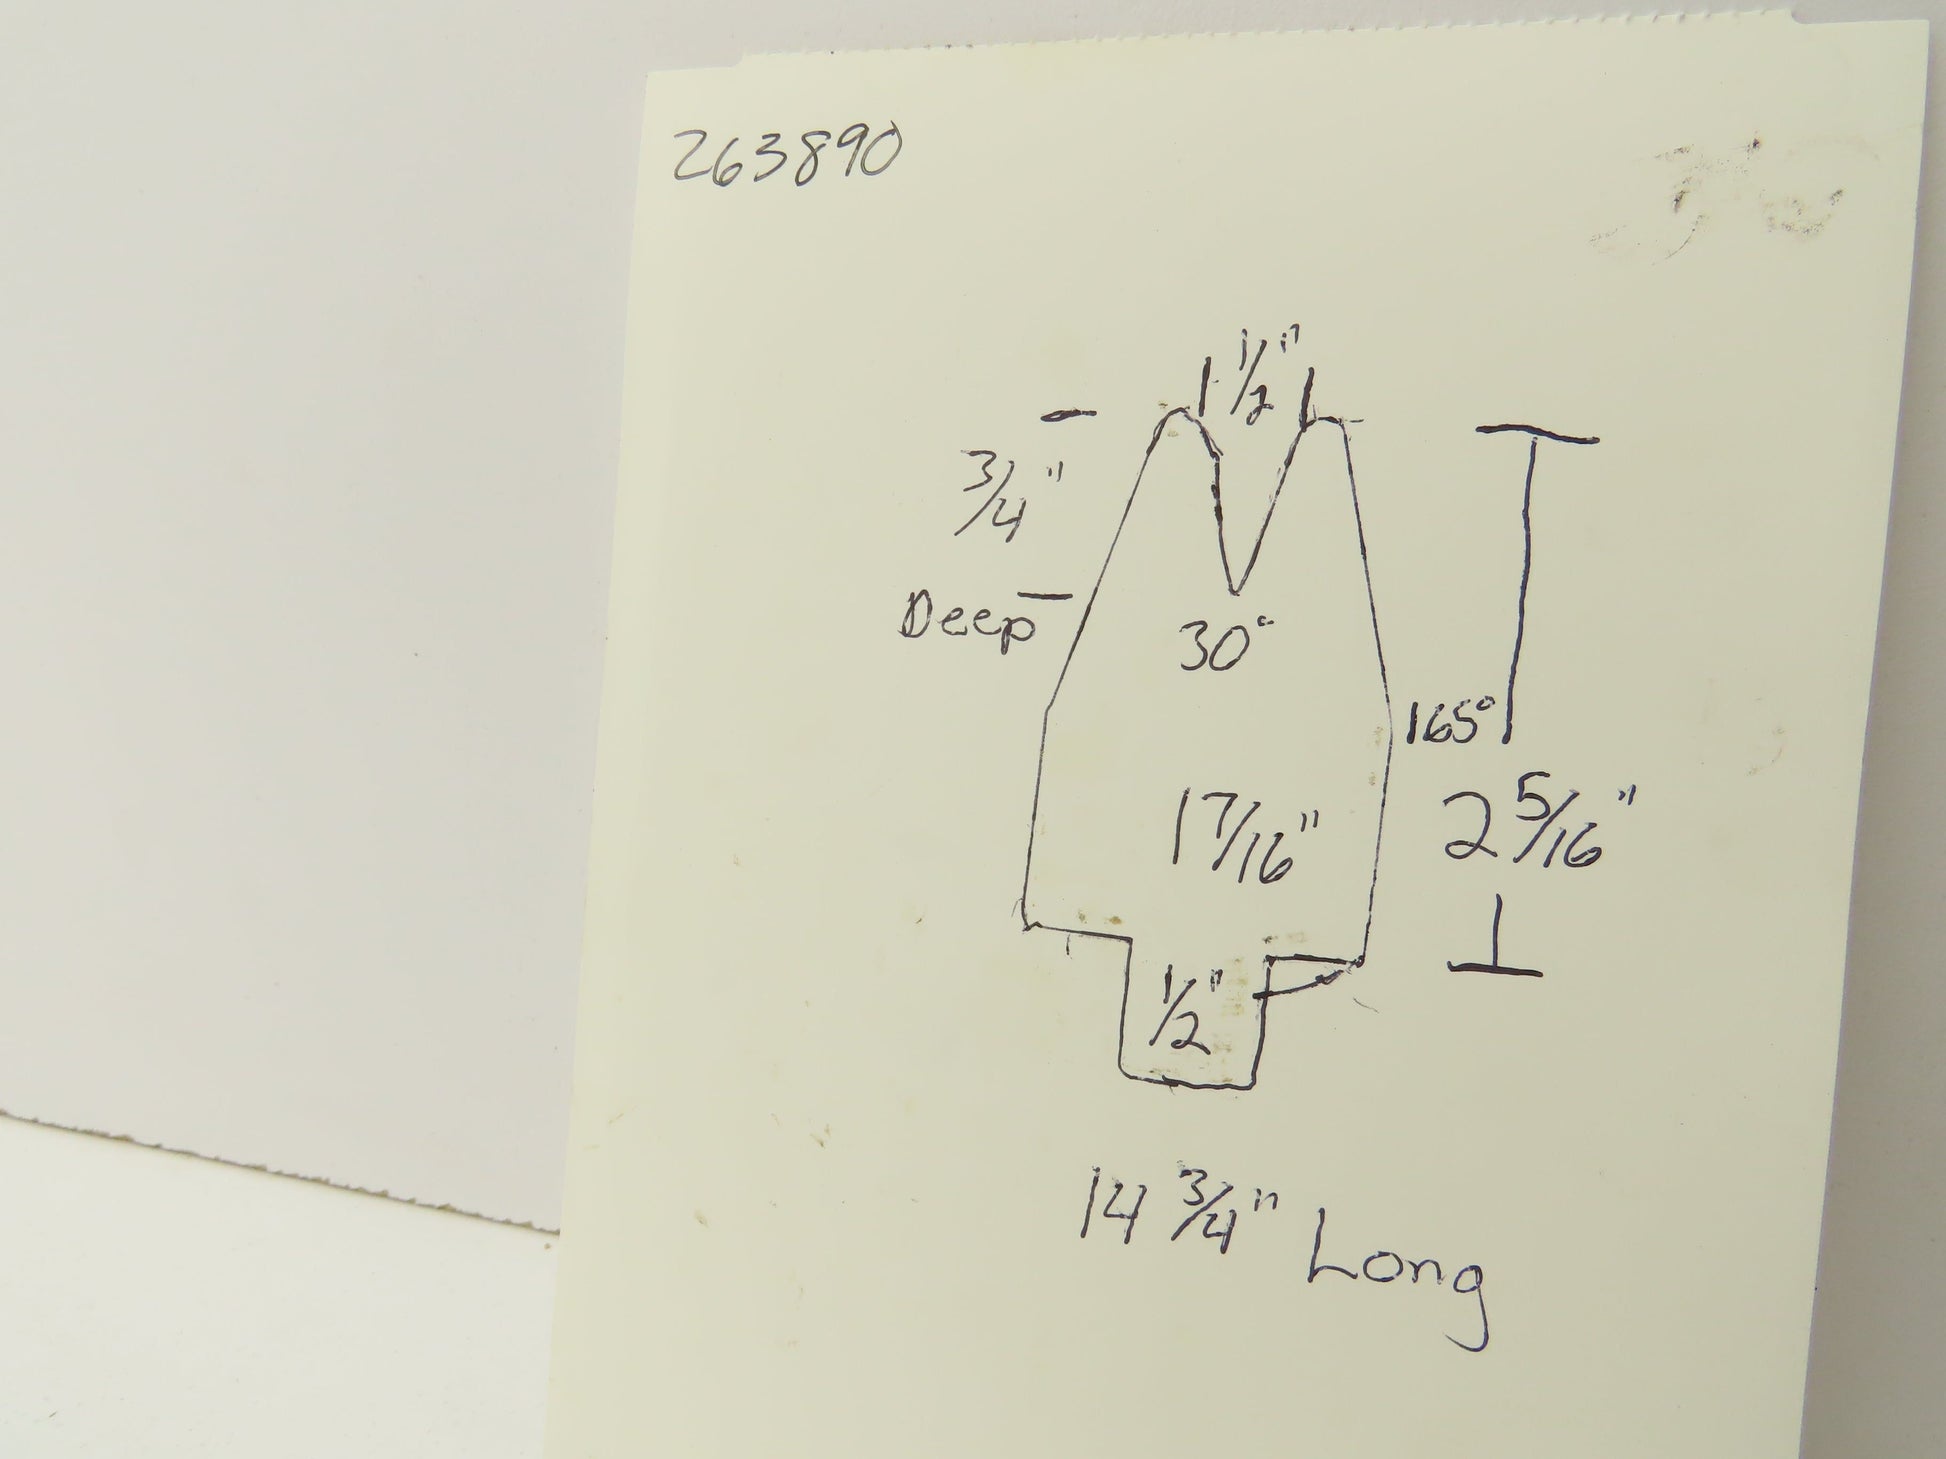 263890
1/2"
3/4"
Deep
30°
165°
1 7/16"
2 5/16"
1/2"
14 3/4" Long